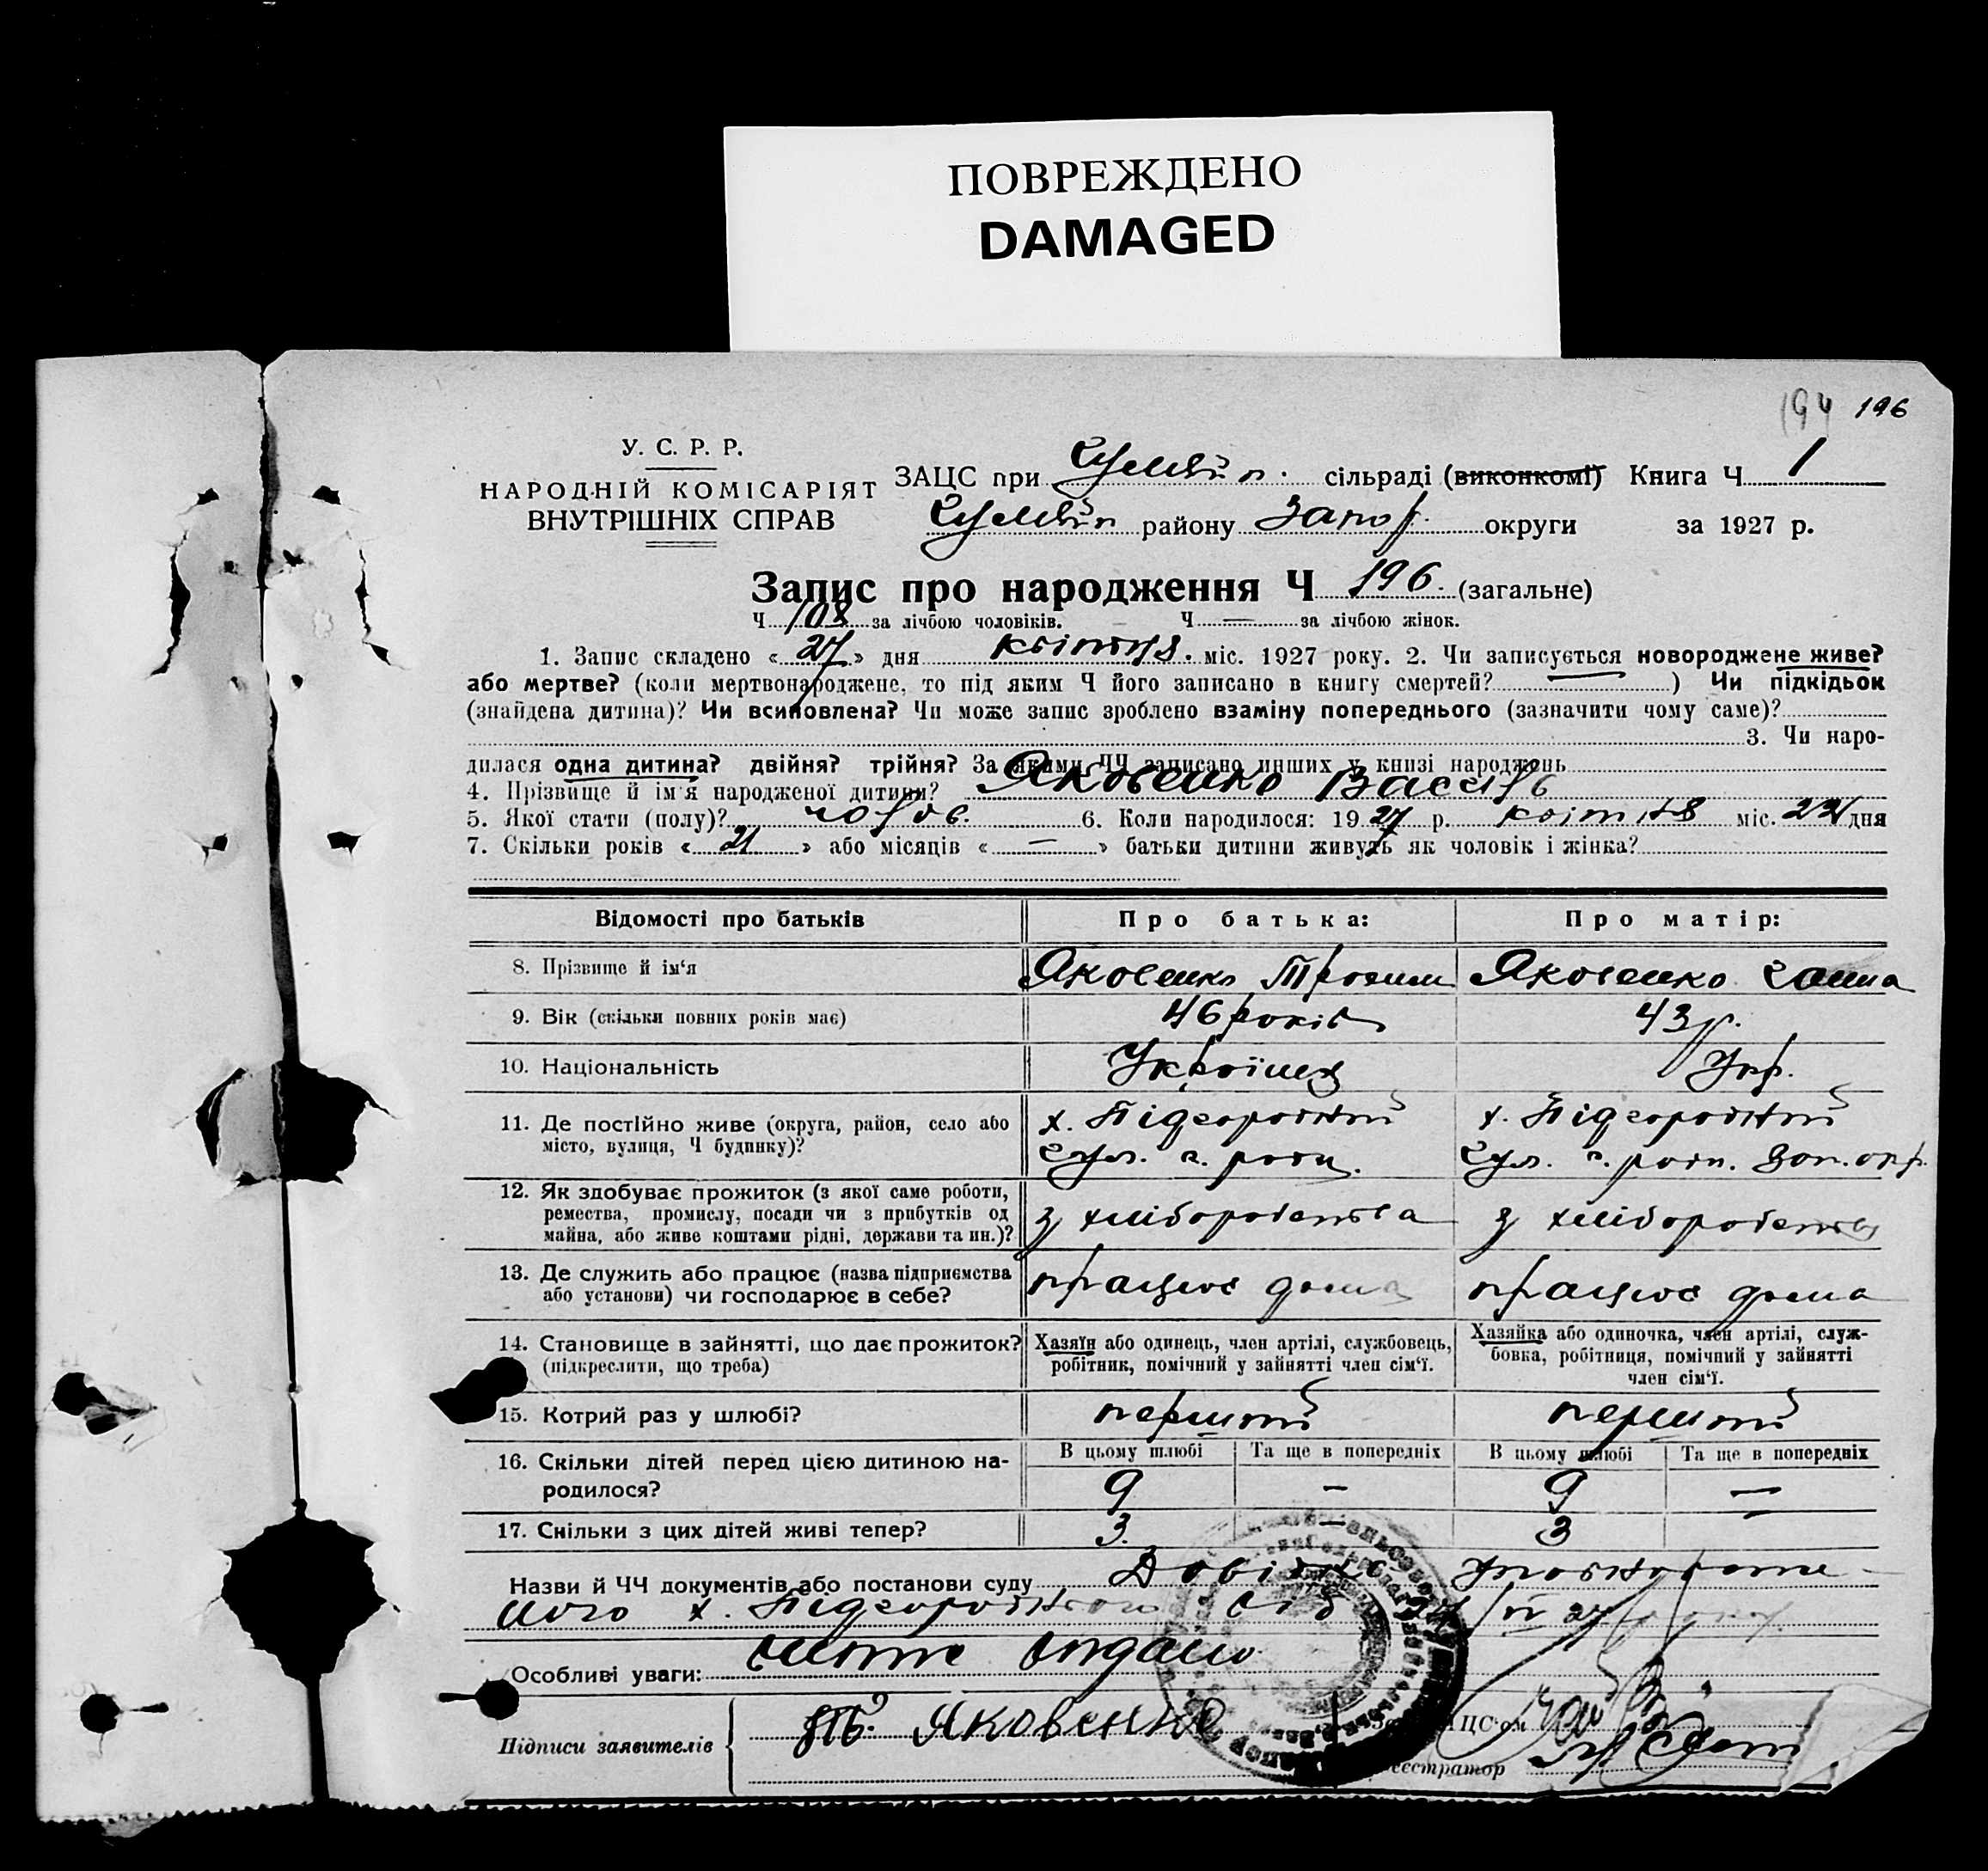 ПОВРЕЖДЕНО
DAMAGED
194 196
У. С. Р. Р.
НАРОДНІЙ КОМІСАРІЯТ
ВНУТРІШНІХ СПРАВ
ЗАЦС при сільраді (виконкомі) Книга Ч 1
району Запор. округи за 1927 р.
Запис про народження Ч 196. (загальне)
Ч 108 за лічбою чоловіків. Ч — за лічбою жінок.
1. Запис складено « 27 » дня квітня. міс. 1927 року. 2. Чи записується новороджене живе?
або мертве? (коли мертвонароджене, то під яким Ч його записано в книгу смертей? — ) Чи підкідьок
(знайдена дитина)? Чи всиновлена? Чи може запис зроблено взаміну попереднього (зазначити чому саме)?
3. Чи наро-
дилася одна дитина? двійня? трійня? За якими ЧЧ записано инших у книзі народжень
4. Прізвище й ім'я народженої дитини? Яковенко Василь
5. Якої стати (полу)? чолов. 6. Коли народилося: 19 27 р. квітня міс. 22 дня
7. Скільки років « 21 » або місяців « — » батьки дитини живуть як чоловік і жінка?
Відомості про батьків Про батька: Про матір:
8. Прізвище й ім'я Яковенко Трохим Яковенко Ганна
9. Вік (скільки повних років має) 46 років 43 р.
10. Національність Українец Укр.
11. Де постійно живе (округа, район, село або х. Підгородній х. Підгородній
місто, вулиця, Ч будинку)?
12. Як здобуває прожиток (з якої саме роботи,
ремества, промислу, посади чи з прибутків од з хліборобства з хліборобства
майна, або живе коштами рідні, держави та ин.)?
13. Де служить або працює (назва підприємства працює дома працює дома
або установи) чи господарює в себе?
14. Становище в зайнятті, що дає прожиток? Хазяїн або одинець, член артілі, службовець, Хазяйка або одиночка, член артілі, служ-
(підкреслити, що треба) робітник, помічний у зайнятті член сім'ї. бовка, робітниця, помічний у зайнятті
член сім'ї.
15. Котрий раз у шлюбі? перший перший
16. Скільки дітей перед цією дитиною на- В цьому шлюбі Та ще в попередніх В цьому шлюбі Та ще в попередніх
родилося? 9 — 9 —
17. Скільки з цих дітей живі тепер? 3. — 3
Назви й ЧЧ документів або постанови суду Довідка уповноваже-
ного х. Підгороднього від
Особливі уваги: видано
Підписи заявителів Яковенко
Реєстратор